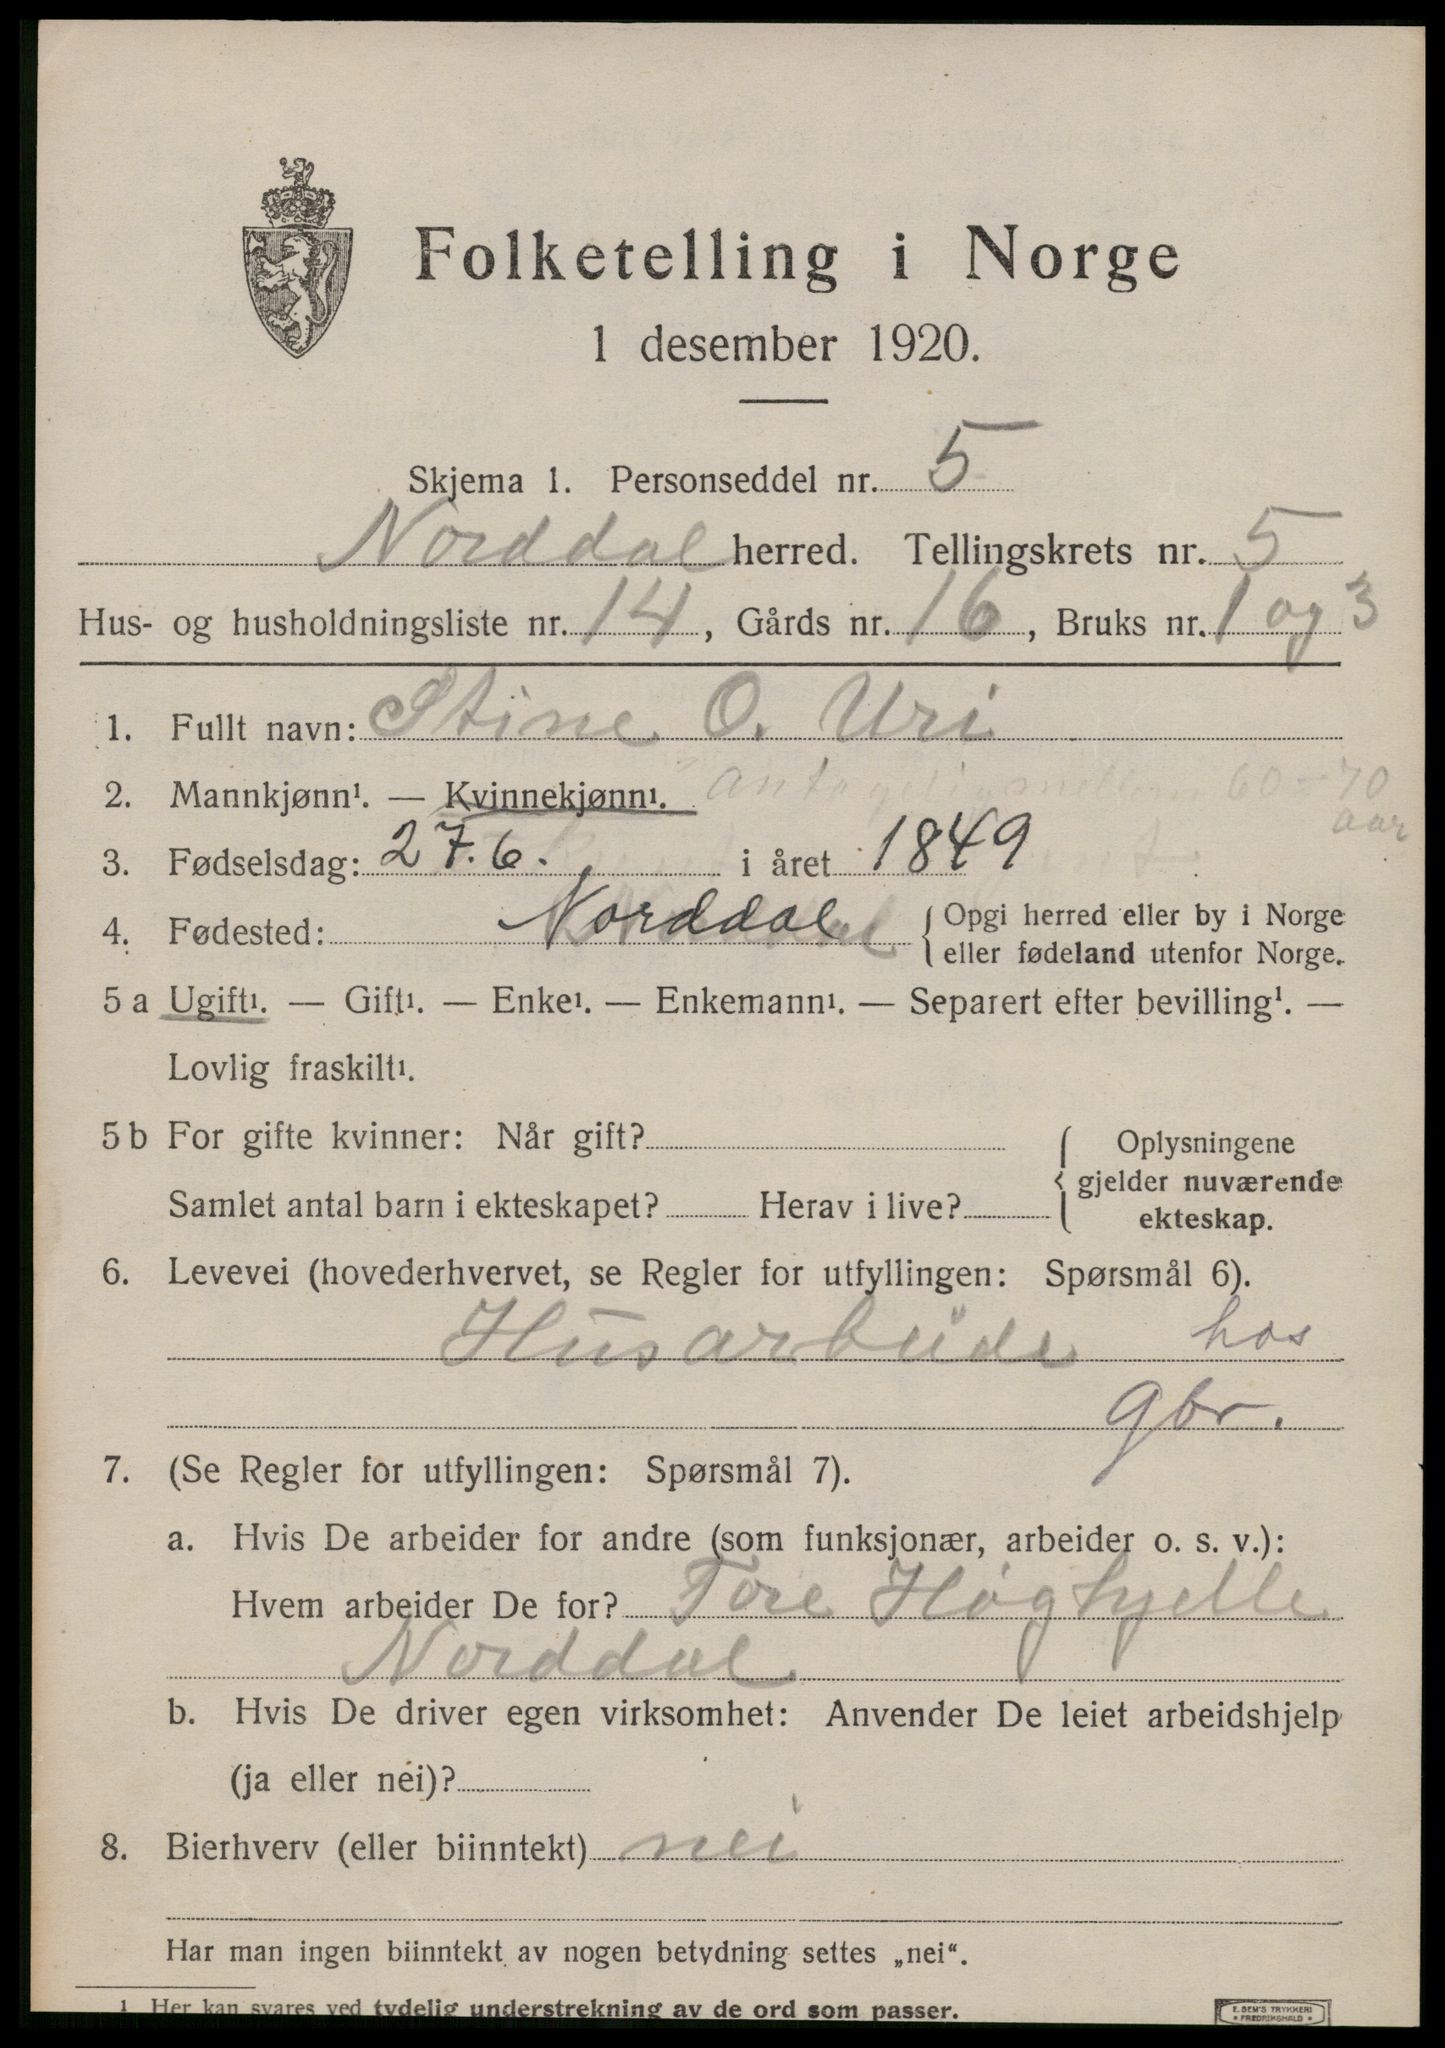 Folketelling i Norge
1 desember 1920.
Skjema 1. Personseddel nr. 5
Norddal herred. Tellingskrets nr. 5
Hus- og husholdningsliste nr. 14, Gårds nr. 16, Bruks nr. 1 og 3
1. Fullt navn: Stine O. Uri
2. Mannkjønn¹. — Kvinnekjønn¹. 60–70
aar
3. Fødselsdag: 27.6. i året 1849
4. Fødested: Norddal { Opgi herred eller by i Norge
eller fødeland utenfor Norge.
5 a Ugift¹. — Gift¹. — Enke¹. — Enkemann¹. — Separert efter bevilling¹. —
Lovlig fraskilt¹.
5 b For gifte kvinner: Når gift? { Oplysningene
gjelder nuværende
Samlet antal barn i ekteskapet? Herav i live? ekteskap.
6. Levevei (hovederhvervet, se Regler for utfyllingen: Spørsmål 6).
Husarbeide hos
gbr.
7. (Se Regler for utfyllingen: Spørsmål 7).
a. Hvis De arbeider for andre (som funksjonær, arbeider o. s. v.):
Hvem arbeider De for? Tore Høghjelle
Norddal.
b. Hvis De driver egen virksomhet: Anvender De leiet arbeidshjelp
(ja eller nei)?
8. Bierhverv (eller biinntekt) nei
Har man ingen biinntekt av nogen betydning settes „nei“.
1 Her kan svares ved tydelig understrekning av de ord som passer.
E. SEM'S TRYKKERI
FREDRIKSHALD